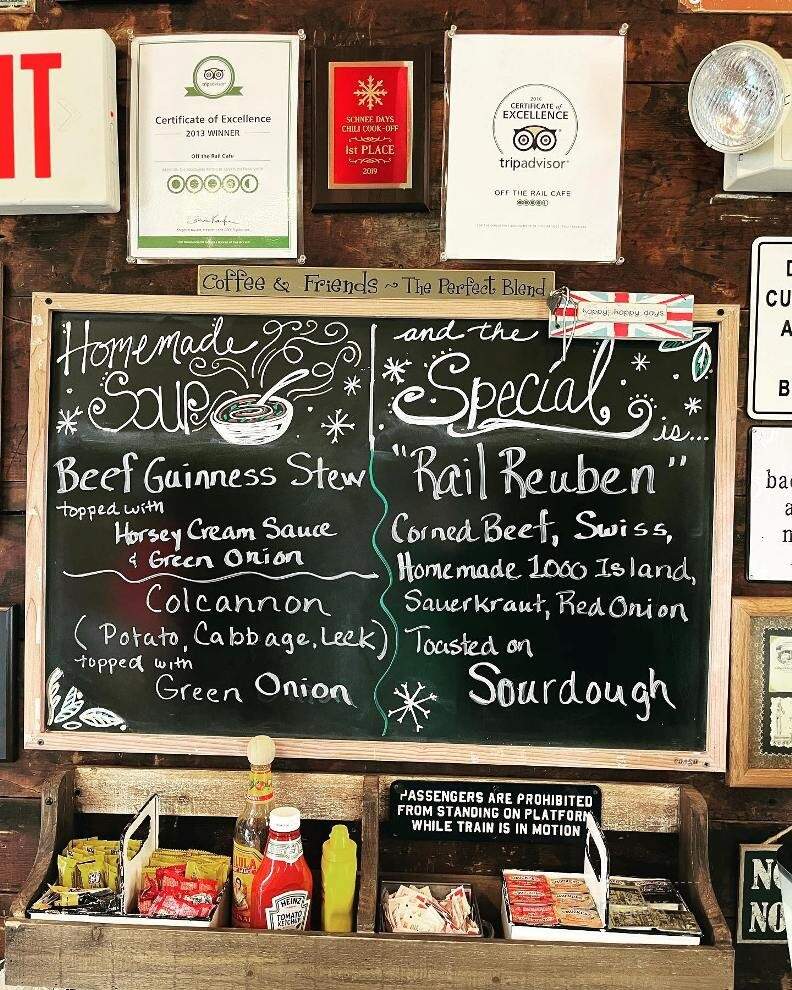 IT
tripadvisor
Certificate of Excellence
2013 WINNER
Off the Rail Cafe
SCHNEE DAYS
CHILI COOK-OFF
1st PLACE
2019
CERTIFICATE of
EXCELLENCE
tripadvisor
OFF THE RAIL CAFE
Coffee & Friends ~ The Perfect Blend
happy, happy days
Homemade
Soup
Beef Guinness Stew
topped with
Horsey Cream Sauce
& Green Onion
Colcannon
( Potato, Cabbage, Leek)
topped with
Green Onion
and the
Special
is...
"Rail Reuben"
Corned Beef, Swiss,
Homemade 1000 Island,
Sauerkraut, Red Onion
Toasted on
Sourdough
PASSENGERS ARE PROHIBITED
FROM STANDING ON PLATFORM
WHILE TRAIN IS IN MOTION
HEINZ
TOMATO
KETCHUP
D
CU
A
B
ba
a
n
NO
NO